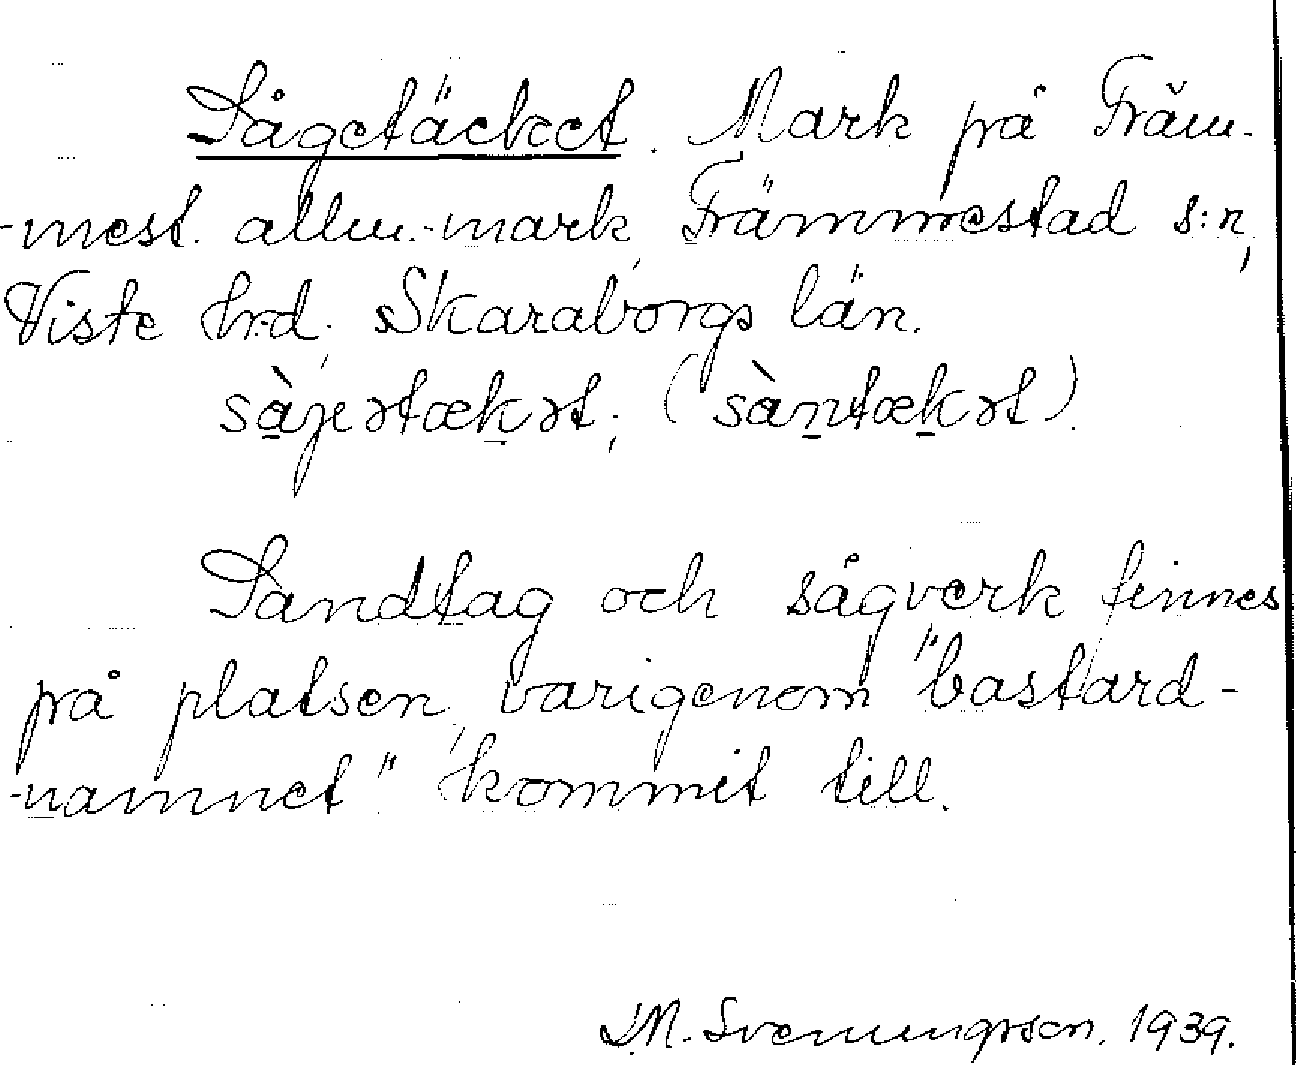 Sågetäcket. Mark på Främ-
-mest. allm.-mark, Främmestad s:n,
Viste hrd. Skaraborgs län.
sàjɘtækɘt, (sàntækɘt).
Sandtag och sågverk finnes
på platsen, varigenom "bastard-
-namnet" kommit till.
Svenungsson. 1939.